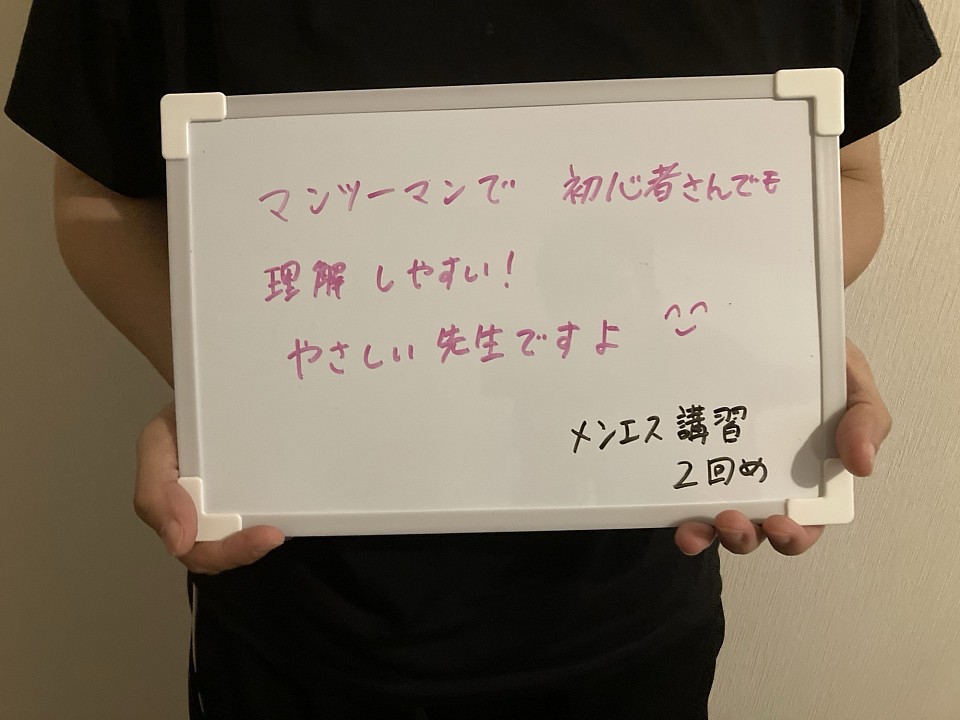 マンツーマンで 初心者さんでも
理解しやすい!
やさしい先生ですよ
メンエス講習
2回め